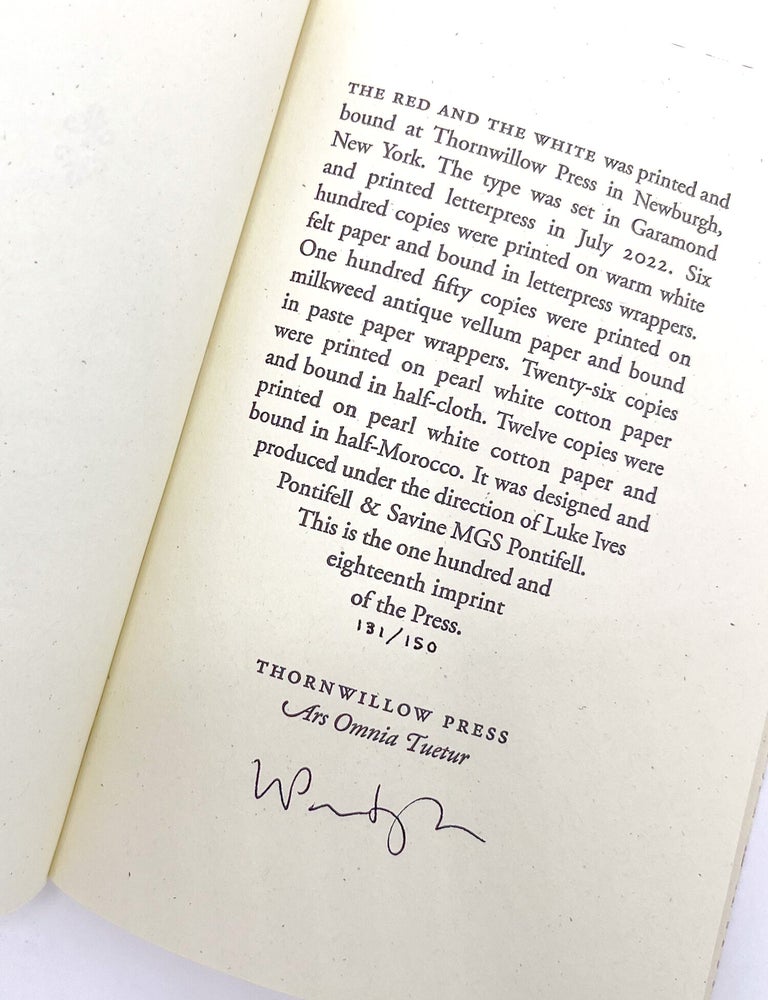 THE RED AND THE WHITE was printed and
bound at Thornwillow Press in Newburgh,
New York. The type was set in Garamond
and printed letterpress in July 2022. Six
hundred copies were printed on warm white
felt paper and bound in letterpress wrappers.
One hundred fifty copies were printed on
milkweed antique vellum paper and bound
in paste paper wrappers. Twenty-six copies
were printed on pearl white cotton paper
and bound in half-cloth. Twelve copies were
printed on pearl white cotton paper and
bound in half-Morocco. It was designed and
produced under the direction of Luke Ives
Pontifell & Savine MGS Pontifell.
This is the one hundred and
eighteenth imprint
of the Press.
131/150
THORNWILLOW PRESS
Ars Omnia Tuetur